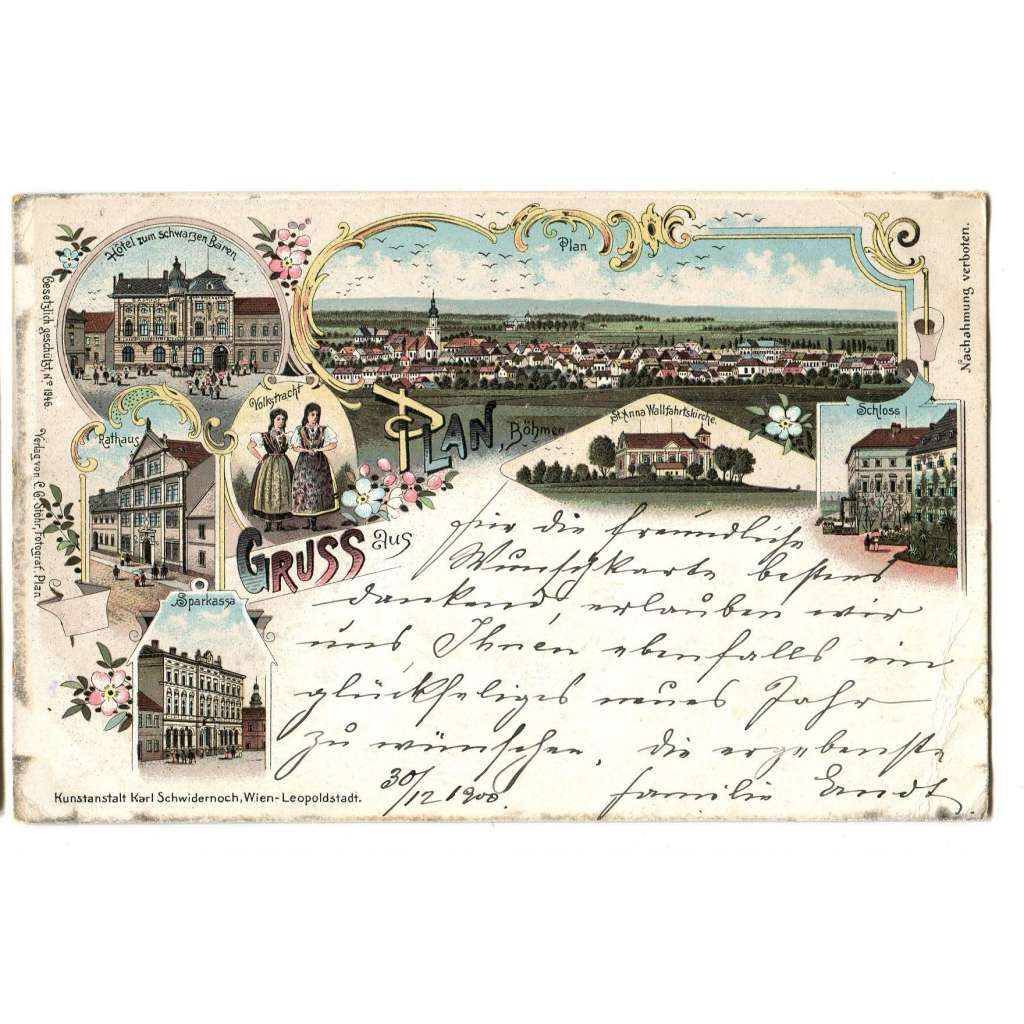 Hôtel zum schwarzen Bären
Plan
Nachahmung verboten.
Gesetzlich geschützt, Nº 1846.
Volkstracht
PLAN,
Böhmen
St. Anna Wallfahrtskirche.
Schloss
Rathaus
Verlag von C. G. Stöhr, Fotograf, Plan.
GRUSS aus
Sparkassa
Für die freundliche
Wunschkarte bestens
dankend, erlauben wir
uns, Ihnen ebenfalls ein
glückseliges neues Jahr
zu wünschen, die ergebenste
30/12 1900. familie
Kunstanstalt Karl Schwidernoch, Wien-Leopoldstadt.